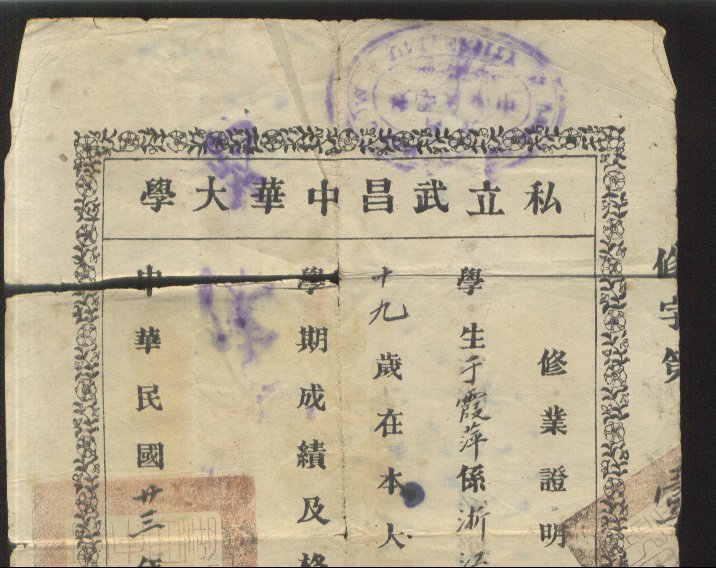 私立武昌中華大學
修字第壹
修業證明
學生于霞萍係浙江
十九歲在本大
學期成績及格
中華民國廿三年